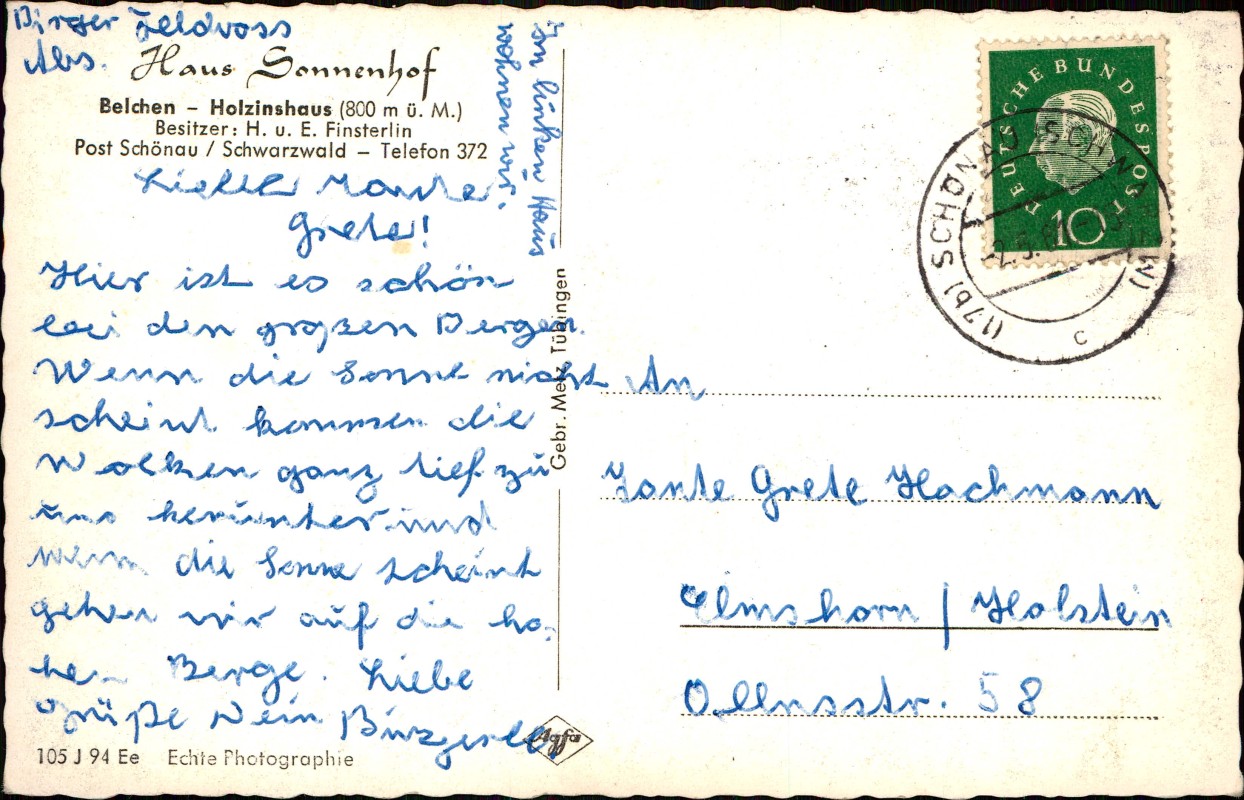 Birger Feldvoss
Abs.
Haus Sonnenhof
Belchen – Holzinshaus (800 m ü. M.)
Besitzer: H. u. E. Finsterlin
Post Schönau / Schwarzwald – Telefon 372
Im linken Haus
wohnen wir.
Liebe Tante
Grete!
Hier ist es schön
bei den großen Bergen.
Wenn die Sonne nicht
scheint kommen die
Wolken ganz tief zu
uns herunter und
wenn die Sonne scheint
gehen wir auf die ho-
hen Berge. Liebe
Grüße Dein
105 J 94 Ee Echte Photographie
Gebr. Metz Tübingen
Agfa
DEUTSCHE BUNDESPOST
10
(17b) SCHÖNAU (SCHWARZW)
c
An
Tante Grete Hachmann
Elmshorn / Holstein
Ollnsstr. 58